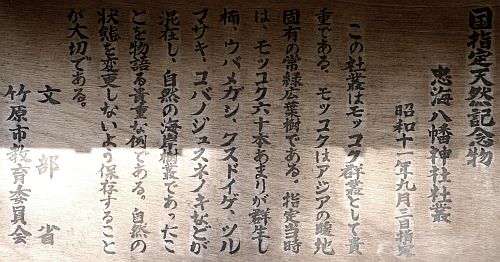 国指定天然記念物
忠海八幡神社社叢
昭和十一年九月三日指定
この社叢はモッコク群叢として貴
重である。モッコクはアジアの暖地
固有の常緑広葉樹である。指定当時
は、モッコク六十本あまりが群生し
楠、ウバメガシ、クスドイゲ、ツル
マサキ、コバノジュスネノキなどが
混在し、自然の海岸樹叢であったこ
とを物語る貴重な例である。自然の
状態を変更しないよう保存すること
が大切である。
文部省
竹原市教育委員会